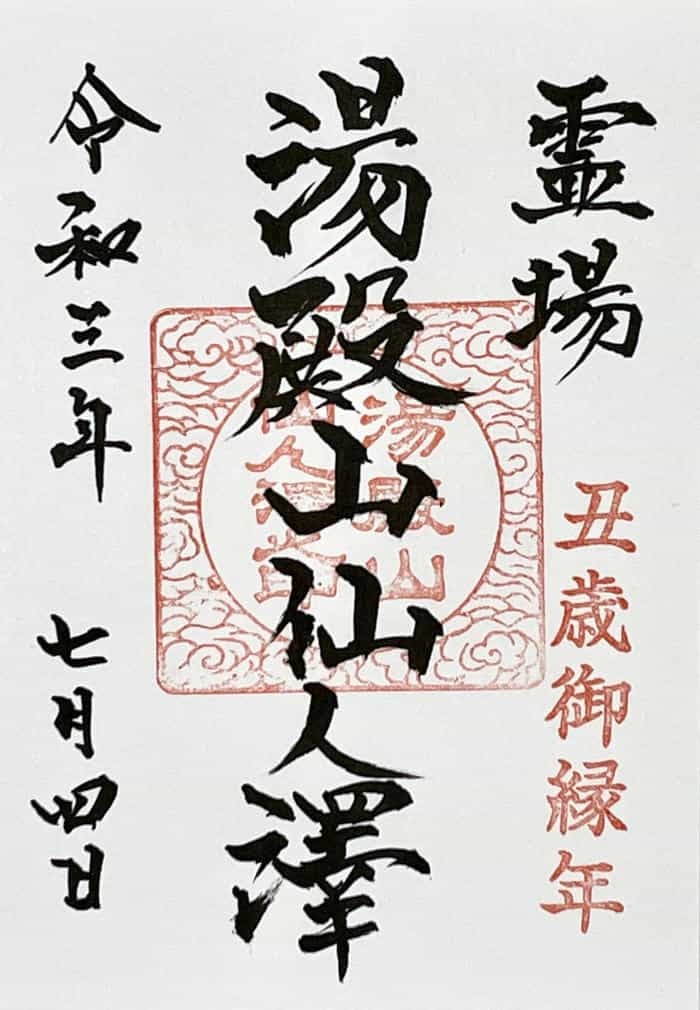 霊場
丑歳御縁年
湯殿山仙人澤
湯殿山
仙人澤
令和三年 七月四日